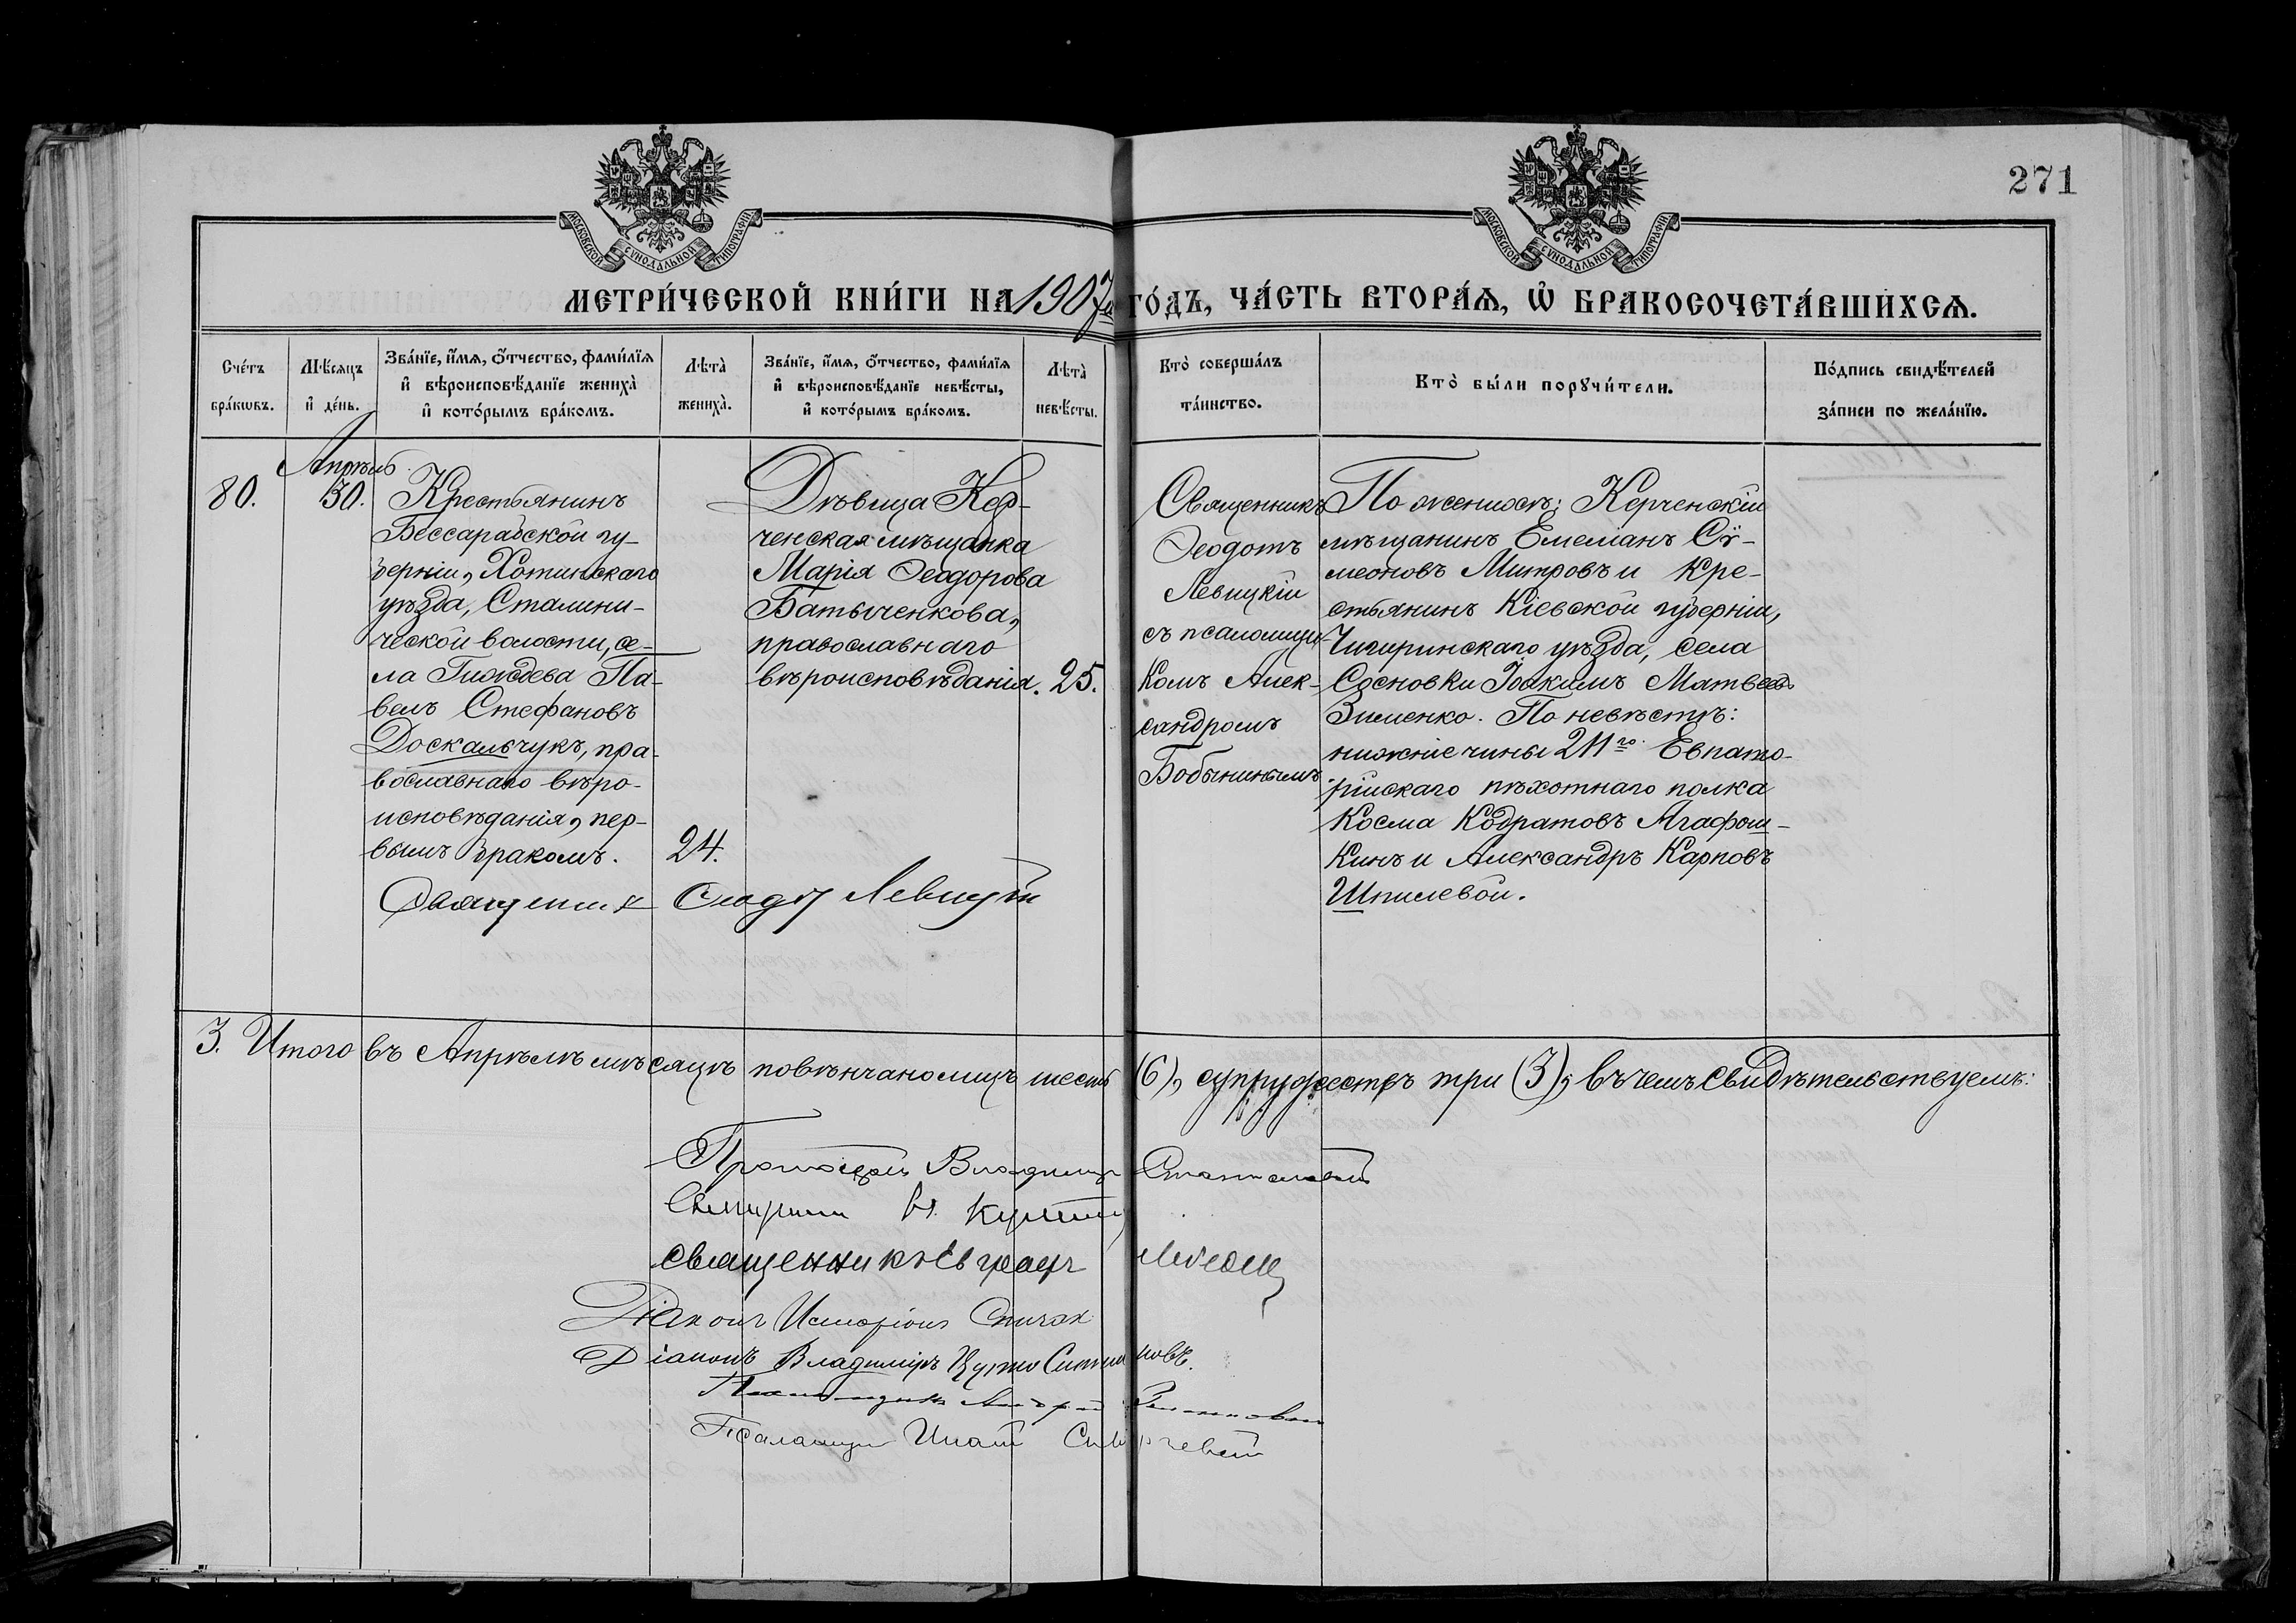 271
МОСКОВСКОЙ СУНОДАЛЬНОЙ ТИПОГРАФІИ
МОСКОВСКОЙ СУНОДАЛЬНОЙ ТИПОГРАФІИ
МЕТРИ́ЧЕСКОЙ КНИ́ГИ НА 1907й ГО́ДЪ, ЧА́СТЬ ВТОРА́Ѧ, Ѿ БРАКОСОЧЕТА́ВШИХСѦ.
Сче́тъ
бра́кѡвъ.
Мѣ́сяцъ
и҆ де́нь.
Зва́нїе, и҆́мѧ, ѻ҆́тчество, фами́лїѧ
и҆ вѣроисповѣ́данїе жениха̀
и҆ кото́рымъ бра́комъ.
Лѣта̀
жениха̀.
Зва́нїе, и҆́мѧ, ѻ҆́тчество, фами́лїѧ
и҆ вѣроисповѣ́данїе невѣ́сты,
и҆ кото́рымъ бра́комъ.
Лѣта̀
невѣ́сты.
Кто̀ соверша́лъ
та́инство.
Кто̀ бы́ли порꙋчи́тели.
По́дпись свидѣ́телей
за́писи по жела́нїю.
80.
Апрѣль
30.
Крестьянинъ
Бессарабской гу-
берніи, Хотинскаго
уѣзда, Сталини-
ческой волости, се-
ла Гиждева Па-
велъ Стефановъ
Доскальчукъ, пра-
вославнаго вѣро-
исповѣданія, пер-
вымъ бракомъ.
24.
Дѣвица Кер-
ченская мѣщанка
Марія Ѳеодорова
Батыченкова,
православнаго
вѣроисповѣданія.
25.
Священникъ
Ѳеодотъ
Левицкій
съ псаломщи-
комъ Алек-
сандромъ
Бобынинымъ.
По женихѣ: Керченскій
мѣщанинъ Емеліанъ Сѵ-
меоновъ Митровъ и кре-
стьянинъ Кіевской губерніи,
Чигиринскаго уѣзда, села
Сосновки Іоакимъ Матвѣевъ
Зименко. По невѣстѣ:
нижніе чины 211го Евпато-
рійскаго пѣхотнаго полка
Косма Кодратовъ Агафош-
кинъ и Александръ Карповъ
Шпилевой.
Священникъ Ѳеодотъ Левицкій
3. Итого въ Апрѣлѣ мѣсяцѣ повѣнчано лицъ шесть (6), супружествъ три (3), въ чемъ свидѣтельствуемъ:
Протоіерей Владимиръ
Священникъ
священникъ Евграфъ
Діаконъ Иларіонъ Спичак
Діаконъ Владиміръ
Псаломщикъ
Псаломщикъ